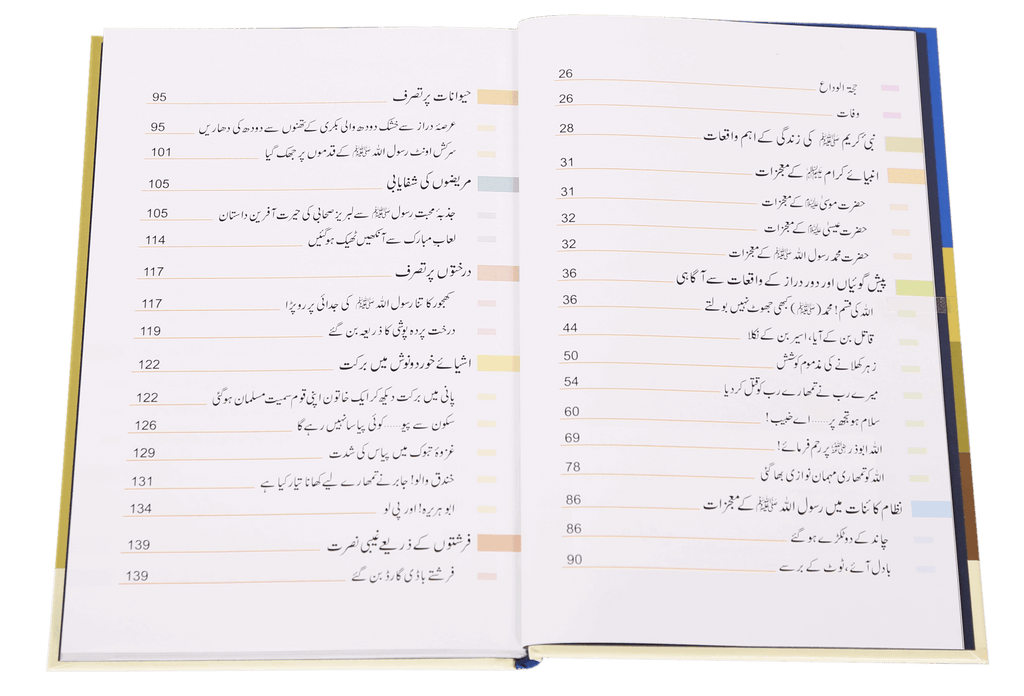 حجۃ الوداع 26
وفات 26
نبی کریم ﷺ کی زندگی کے اہم واقعات 28
انبیائے کرام علیہم السلام کے معجزات 31
حضرت موسیٰ علیہ السلام کے معجزات 31
حضرت عیسیٰ علیہ السلام کے معجزات 32
حضرت محمد رسول اللہ ﷺ کے معجزات 32
پیش گوئیاں اور دور دراز کے واقعات سے آگاہی 36
اللہ کی قسم! محمد (ﷺ) کبھی جھوٹ نہیں بولتے 36
قاتل بن کے آیا، اسیر بن کے نکلا 44
زہر کھلانے کی مذموم کوشش 50
میرے رب نے تمھارے رب کو قتل کر دیا 54
سلام ہو تجھ پر...... اے خبیب! 60
اللہ ابوذر رضی اللہ عنہ پر رحم فرمائے! 69
اللہ کو تمھاری مہمان نوازی بھا گئی 78
نظام کائنات میں رسول اللہ ﷺ کے معجزات 86
چاند کے دو ٹکڑے ہو گئے 86
بادل آئے، ٹوٹ کے برسے 90
حیوانات پر تصرف 95
عرصۂ دراز سے خشک دودھ والی بکری کے تھنوں سے دودھ کی دھاریں 95
سرکش اونٹ رسول اللہ ﷺ کے قدموں پر جھک گیا 101
مریضوں کی شفایابی 105
جذبۂ محبت رسول ﷺ سے لبریز صحابی کی حیرت آفرین داستان 105
لعاب مبارک سے آنکھیں ٹھیک ہو گئیں 114
درختوں پر تصرف 117
کھجور کا تنا رسول اللہ ﷺ کی جدائی پر رو پڑا 117
درخت پردہ پوشی کا ذریعہ بن گئے 119
اشیائے خورد و نوش میں برکت 122
پانی میں برکت دیکھ کر ایک خاتون اپنی قوم سمیت مسلمان ہو گئی 122
سکون سے پیو...... کوئی پیاسا نہیں رہے گا 126
غزوۂ تبوک میں پیاس کی شدت 129
خندق والو! جابر نے تمھارے لیے کھانا تیار کیا ہے 131
ابو ہریرہ! اور پی لو 134
فرشتوں کے ذریعے غیبی نصرت 139
فرشتے باڈی گارڈ بن گئے 139